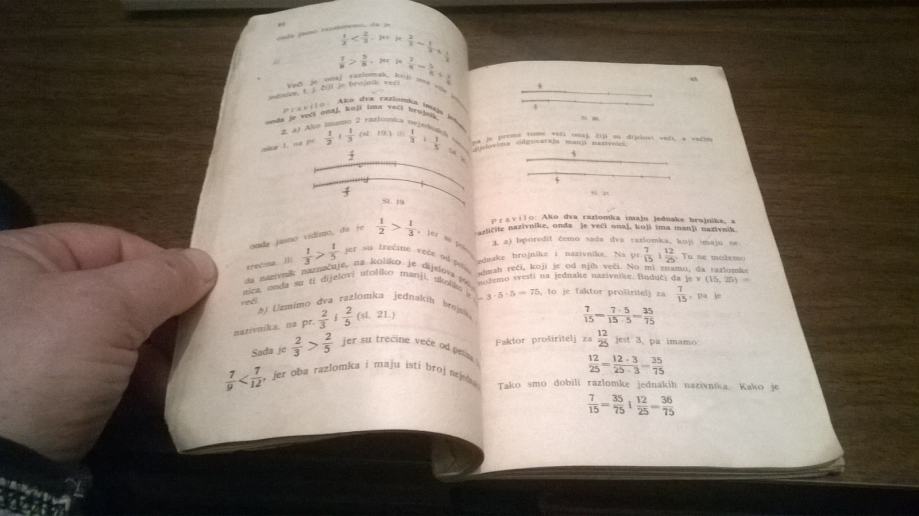 onda jasno razaberemo, da je
1/3 < 2/3, jer je 2/3 = 1/3 + 1/3
7/8 > 5/8, jer je 7/8 = 5/8 +
Veći je onaj razlomak, koji ima više
jedinice, t. j. čiji je brojnik veći
Pravilo: Ako dva razlomka imaju
onda je veći onaj, koji ima veći brojnik.
2. a) Ako imamo 2 razlomka nejednakih
nika 1, na pr. 1/2 i 1/3 (sl. 19.) ili 1/3 i 1/5
Sl. 19
onda jasno vidimo, da je 1/2 > 1/3, jer je
trećina. Ili 1/3 > 1/5 jer su trećine veće od
da nazivnik naznačuje, na koliko je dijelova
nica, onda su ti dijelovi utoliko manji, ukoliko je
veći.
b) Uzmimo dva razlomka jednakih brojnika
nazivnika, na pr. 2/3 i 2/5 (sl. 21.)
Sada je 2/3 > 2/5 jer su trećine veće od petina
7/9 < 7/12, jer oba razlomka i maju isti broj
pa je prema tome veći onaj, čiji su dijelovi veći, a većim
dijelovima odgovaraju manji nazivnici.
Sl. 21.
Pravilo: Ako dva razlomka imaju jednake brojnike, a
različite nazivnike, onda je veći onaj, koji ima manji nazivnik.
3. a) Isporedit ćemo sada dva razlomka, koji imaju ne-
jednake brojnike i nazivnike. Na pr. 7/15 i 12/25. Tu ne možemo
odmah reći, koji je od njih veći. No mi znamo, da razlomke
možemo svesti na jednake nazivnike. Budući da je v (15, 25) =
= 3 · 5 · 5 = 75, to je faktor proširitelj za 7/15, pa je
7/15 = 7 · 5/15 · 5 = 35/75
Faktor proširitelj za 12/25 jest 3, pa imamo:
12/25 = 12 · 3/25 · 3 = 35/75
Tako smo dobili razlomke jednakih nazivnika. Kako je
7/15 = 35/75 i 12/25 = 36/75